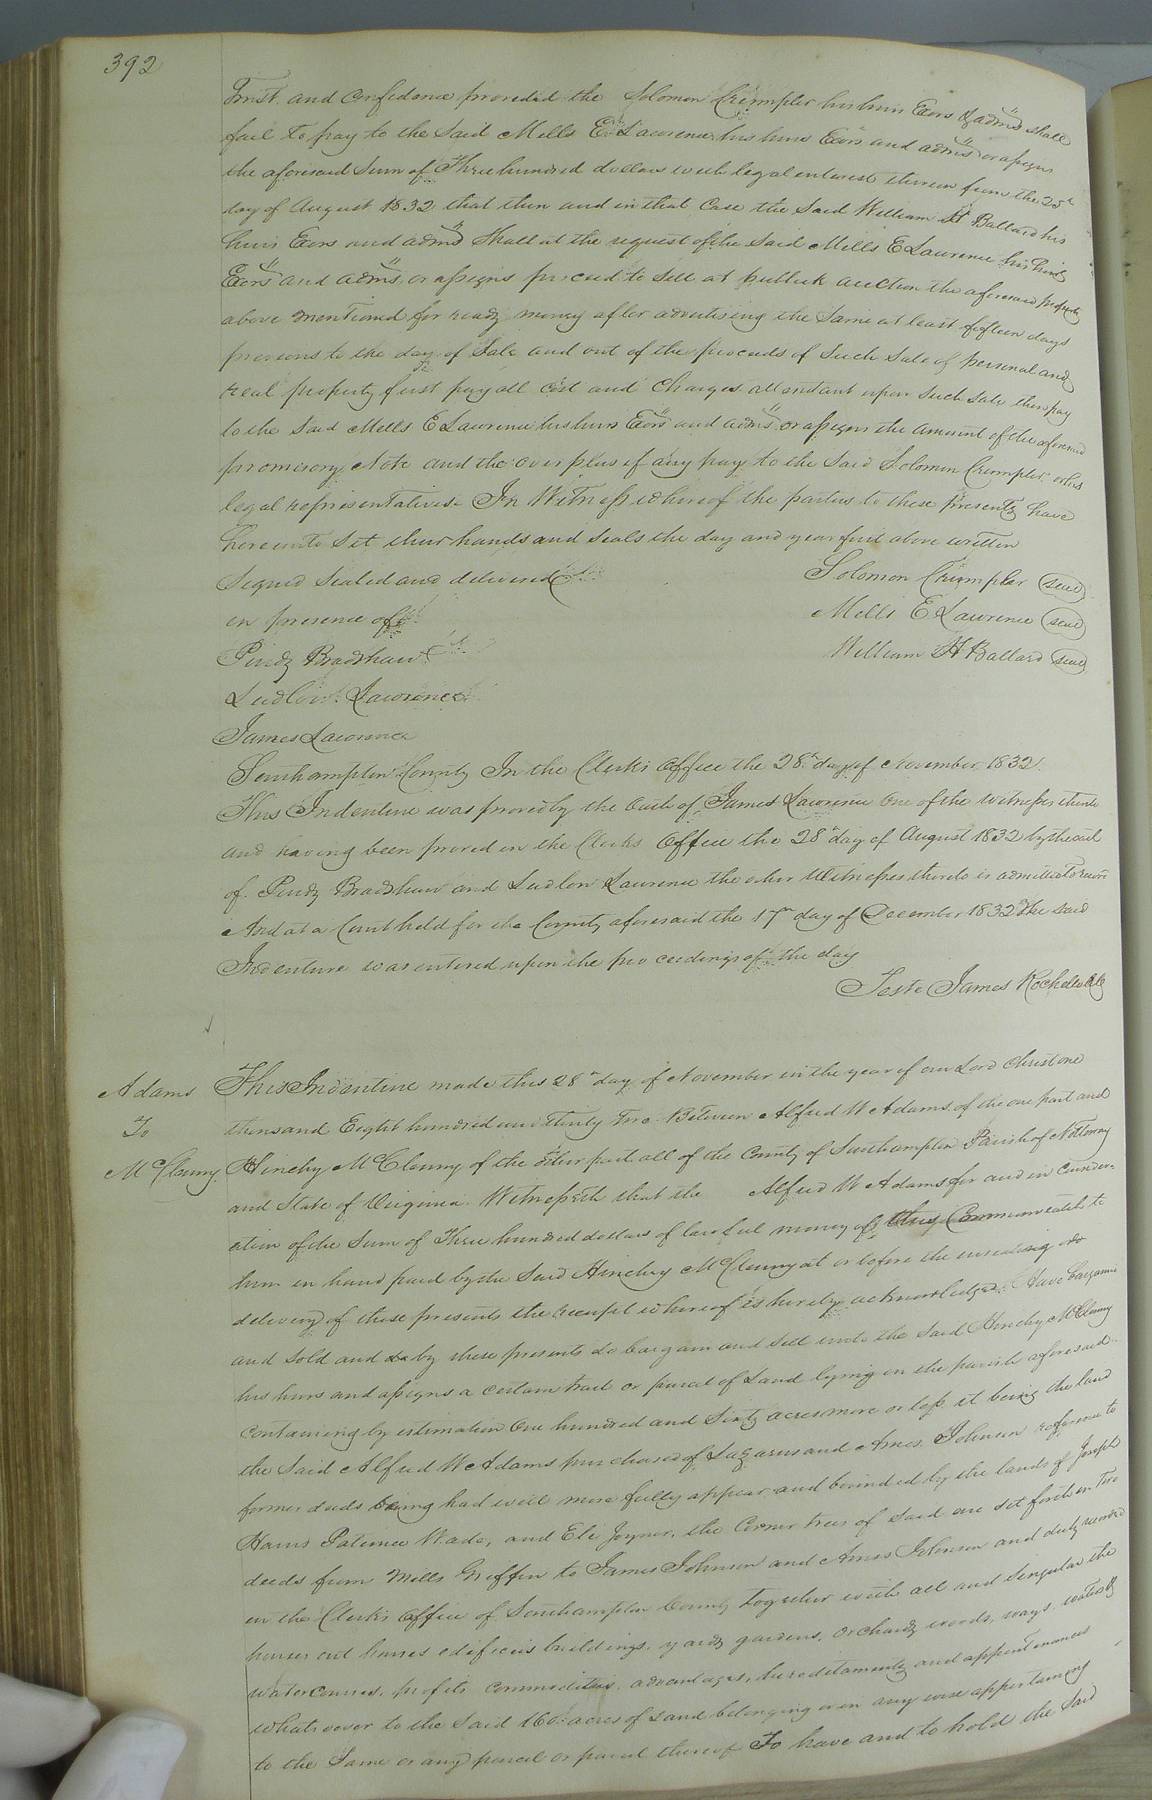 392
Trust and confidence provided the Solomon Crumpler his heirs Exors & admrs shall
fail to pay to the said Mills E Lawrence his heirs Exors and admrs or assigns
the aforesaid Sum of Three hundred dollars with legal interest thereon from the 25th
day of August 1832 that then and in that Case the Said William H Ballard his
heirs Exors and admrs Shall at the request of the Said Mills E Lawrence his heirs
Exors and admrs or assigns proceed to Sell at publick auction the aforesaid property
above mentioned for ready money after advertising the Same at least fifteen days
previous to the day of Sale and out of the proceeds of Such Sale of personal and
real property first pay all cost and Charges attendant upon Such Sale then pay
to the Said Mills E Lawrence his heirs Exors and admrs or assigns the amount of the aforesaid
promisory Note and the overplus if any pay to the Said Solomon Crumpler or his
legal representatives. In Witness whereof the parties to these presents have
hereunto Set their hands and Seals the day and year first above written
Signed Sealed and delivered Solomon Crumpler seal
in presence of Mills E Lawrence seal
Purdy Bradshaw William H Ballard seal
Ludlow Lawrence
James Lawrence
Southampton County In the Clerks Office the 28th day of November 1832
This Indenture was proved by the oath of James Lawrence one of the witnesses thereto
and having been proved in the Clerks Office the 28th day of August 1832 by the oath
of Purdy Bradshaw and Ludlow Lawrence the other Witnesses thereto is admitted to record
And at a Court held for the County aforesaid the 17th day of December 1832 The Said
Indenture was entered upon the proceedings of the day
Teste James Rochelle Clk
Adams
To
McClenny
This Indenture made this 28th day of November in the year of our Lord Christ one
thousand Eight hundred and Thirty Two Between Alfred W Adams of the one part and
Hinchy McClenny of the other part all of the County of Southampton Parish of Nottoway
and State of Virginia Witnesseth that the Alfred W Adams for and in Consider-
ation of the Sum of Three hundred dollars of lawful money of this Commonwealth to
him in hand paid by the Said Hinchy McClenny at or before the ensealing and
delivery of these presents the receipt whereof is hereby acknowledged. Have bargained
and sold and do by these presents do bargain and sell unto the said Hinchy McClenny
his heirs and assigns a certain tract or parcel of Land lying in the parish aforesaid
containing by estimation One hundred and Sixty acres more or less it being the land
the Said Alfred W Adams purchased of Lazarus and Amos Johnson reference to
former deeds being had will more fully appear and bounded by the lands of Joseph
Harris Patience Wade, and Eli Joyner, the Corner trees of Said are set forth in Two
deeds from Mills Griffin to James Johnson and Amos Johnson and duly recorded
in the Clerks office of Southampton County Together with all and Singular the
houses out houses edifices buildings, yards gardens, orchards woods, ways, waters
watercourses, profits commodities, advantages, hereditaments and appurtenances
whatsoever to the Said 160 acres of Land belonging or in any wise appertaining
to the Same or any parcel or parcel thereof To have and to hold the Said